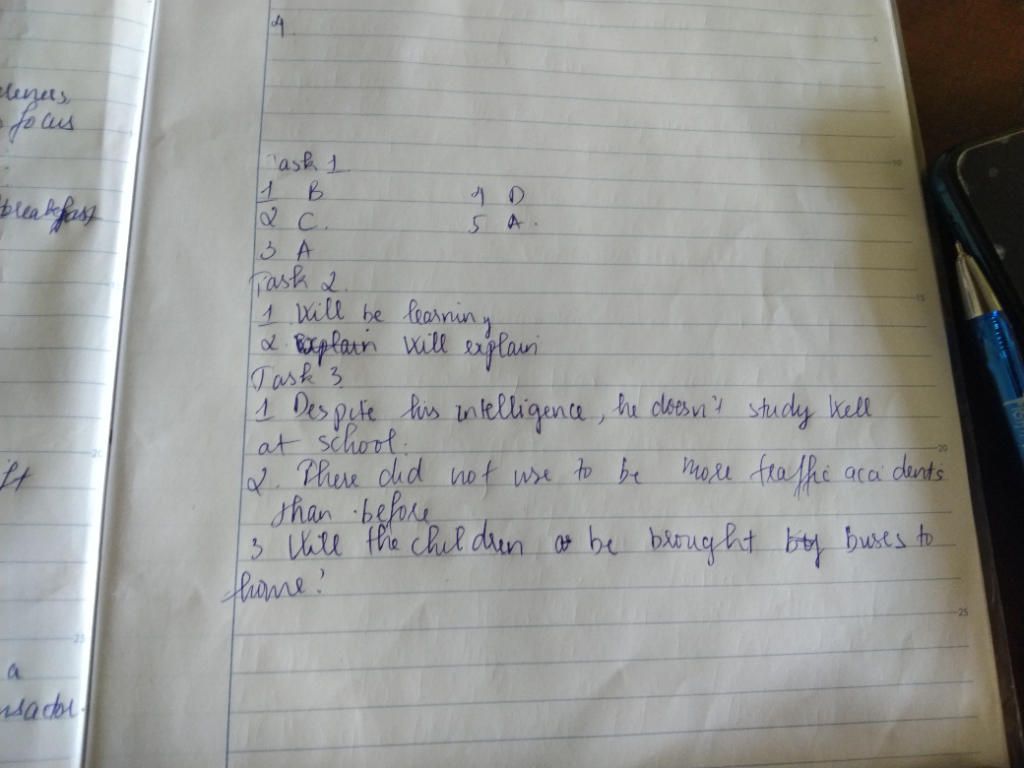 4.
focus
breakfast
Task 1
1 B 4 D
2 C. 5 A.
3 A
Task 2.
1 Will be learning
2. Explain Will explain
Task 3
1 Despite his intelligence, he doesn't study well
at school.
2. There did not use to be more traffic accidents
than before
3 Will the children be brought by buses to
home?
a